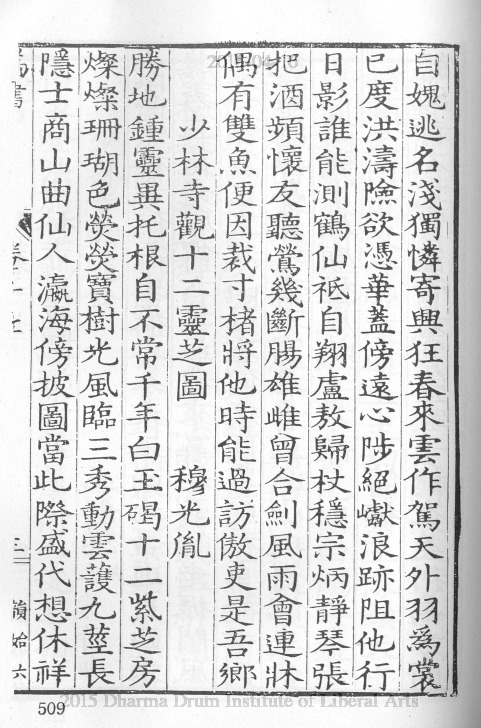 自媿逃名淺獨憐寄興狂春來雲作駕天外羽爲裳
已度洪濤險欲憑華蓋傍遠心陟絕巘浪跡阻他行
日影誰能測鶴仙祗自翔盧敖歸杖穩宗炳靜琴張
把酒頻懷友聽鶯幾斷腸雄雌曾合劍風雨會連牀
偶有雙魚便因裁寸楮將他時能過訪傲吏是吾鄉
少林寺觀十二靈芝圖 穆光胤
勝地鍾靈異托根自不常千年白玉碣十二紫芝房
燦燦珊瑚色熒熒寶樹光風臨三秀動雲護九莖長
隱士商山曲仙人瀛海傍披圖當此際盛代想休祥
三
509
2015 Dharma Drum Institute of Liberal Arts